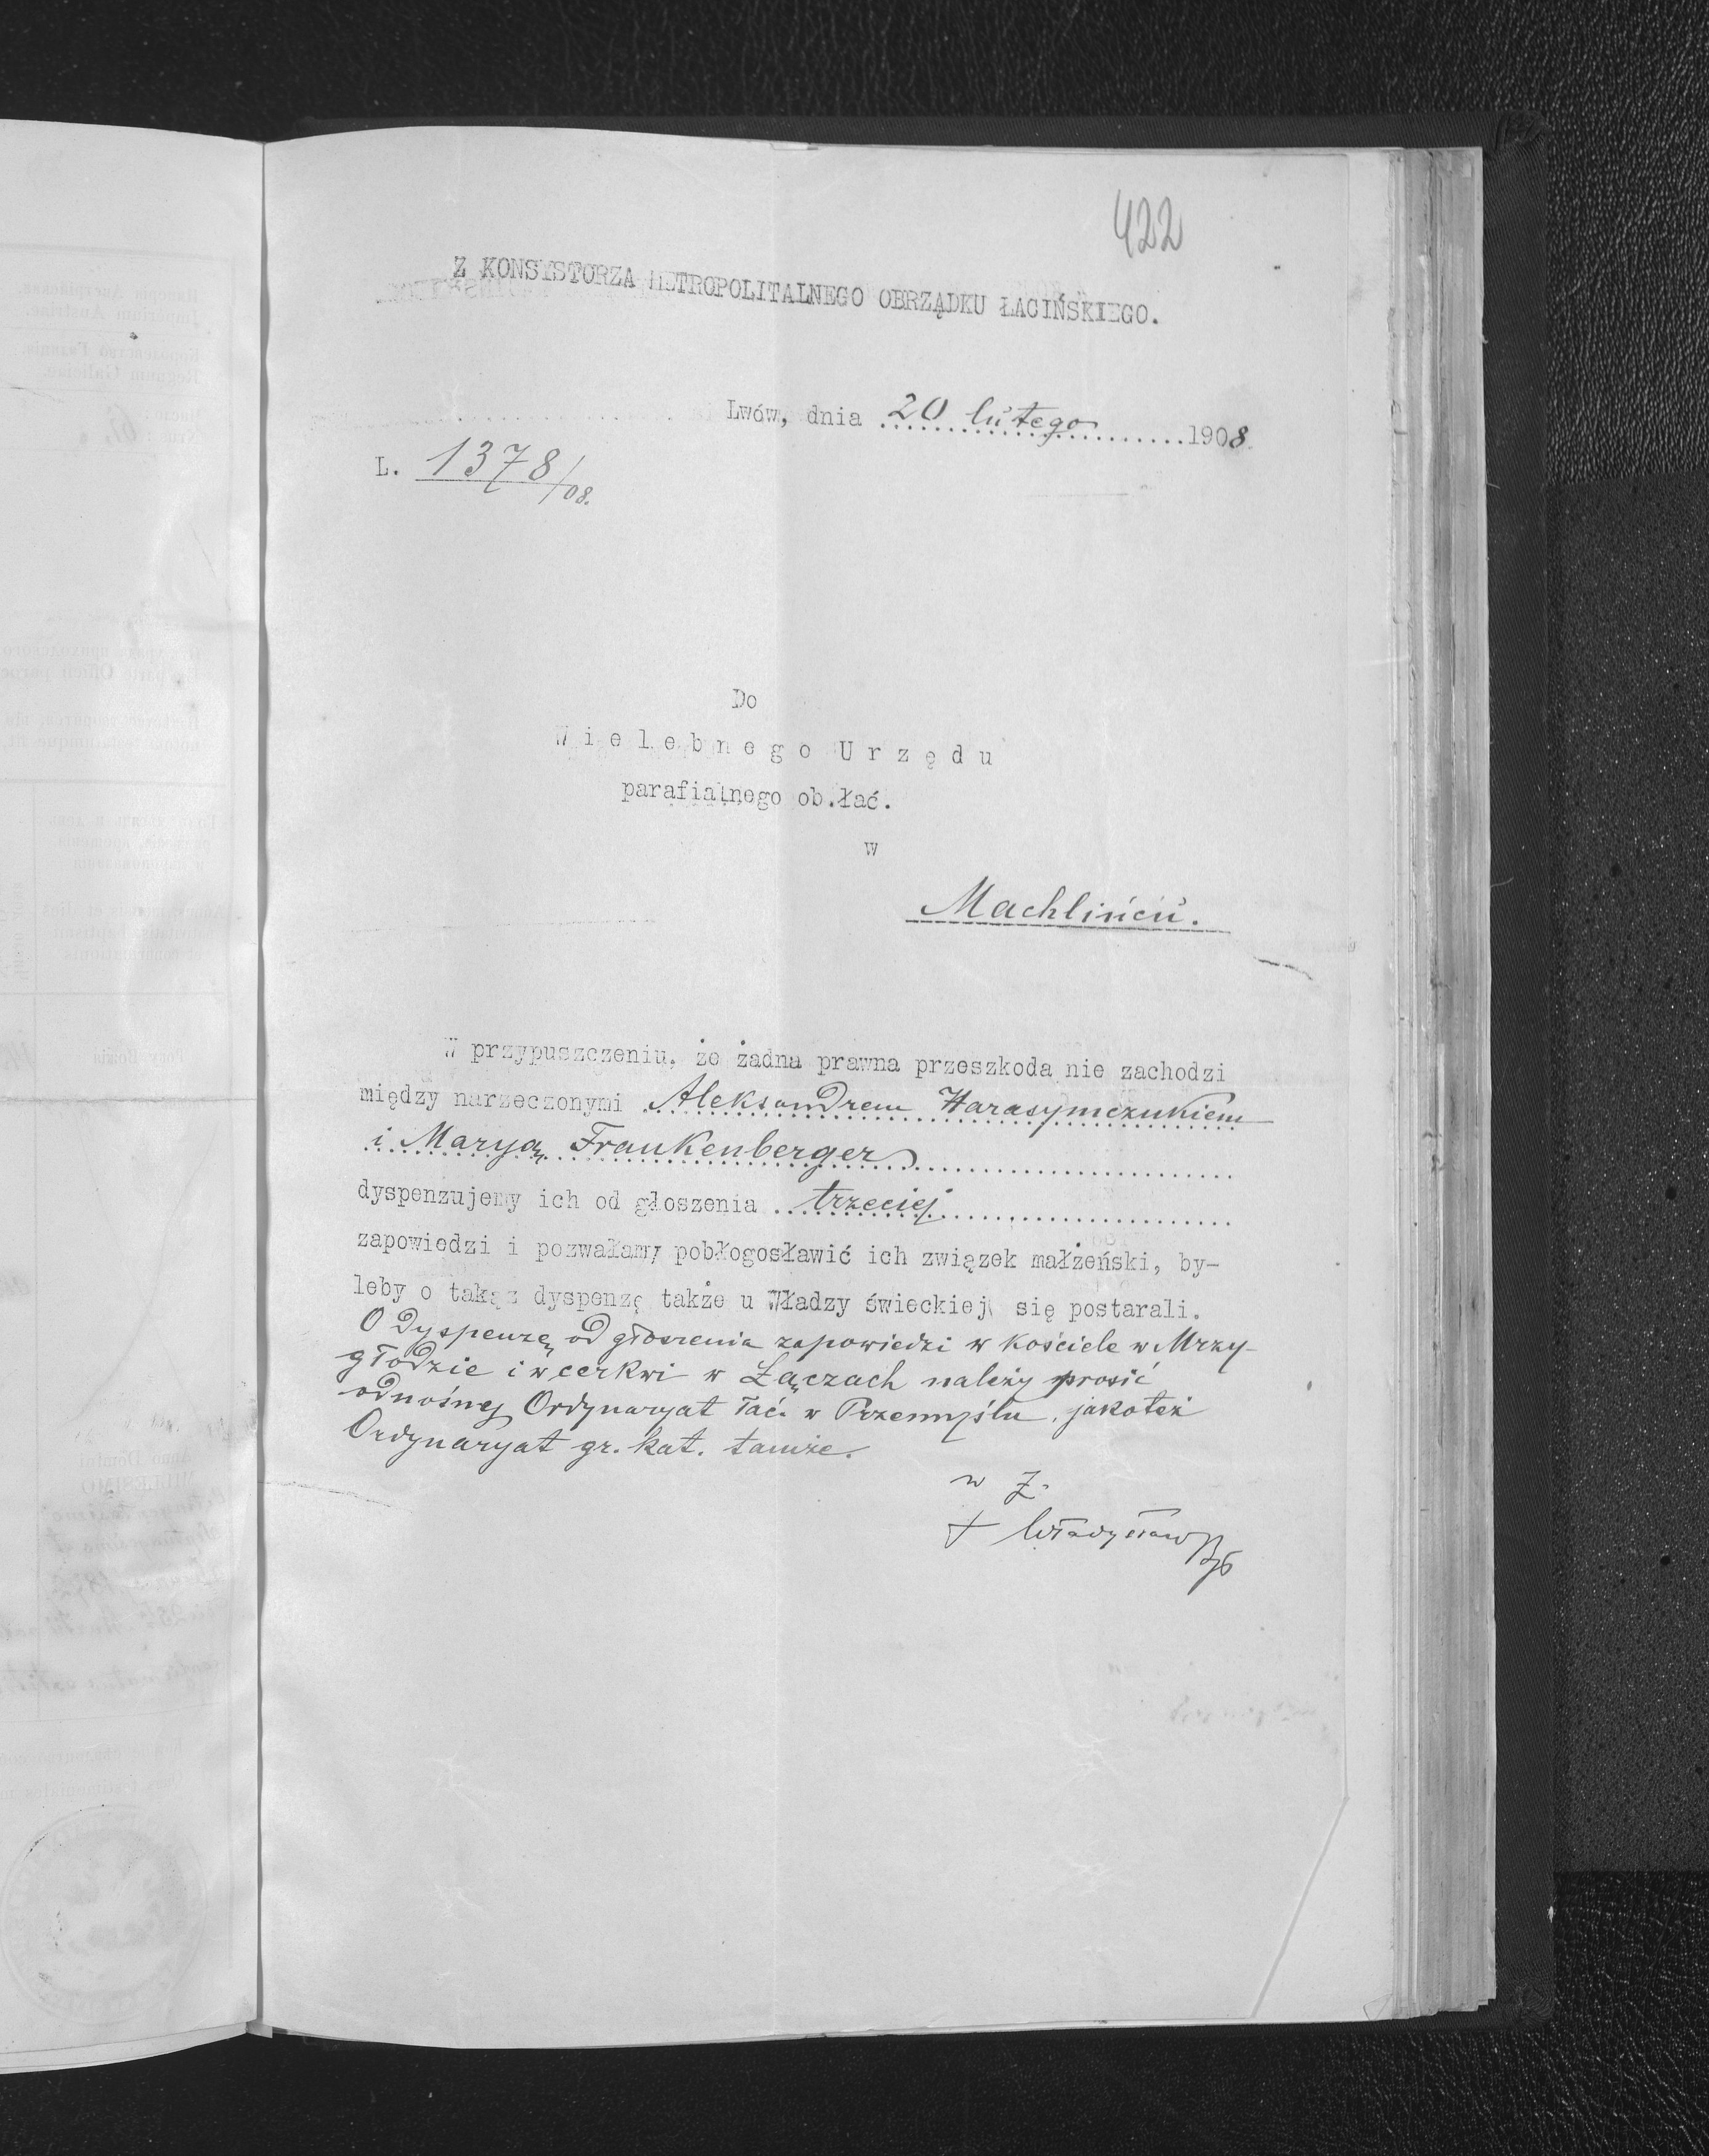 422
Z KONSYSTORZA METROPOLITALNEGO OBRZĄDKU ŁACIŃSKIEGO.
Lwów, dnia 20 lutego 1908.
L. 1378/08.
Do
Wielebnego Urzędu
parafialnego ob.łać.
w
Machlińcu.
W przypuszczeniu, że żadna prawna przeszkoda nie zachodzi
między narzeczonymi Aleksandrem Harasymczukiem
i Maryą Frankenberger
dyspenzujemy ich od głoszenia trzeciej
zapowiedzi i pozwalamy pobłogosławić ich związek małżeński, by-
leby o takąż dyspenzę także u Władzy świeckiej się postarali.
O dyspenzę od głoszenia zapowiedzi w kościele w Mrzy-
głodzie i w cerkwi w Łączach należy prosić
odnośny Ordynaryat łać. w Przemyślu, jakoteż
Ordynaryat gr. kat. tamże.
w Z.
+ Władysław Bp